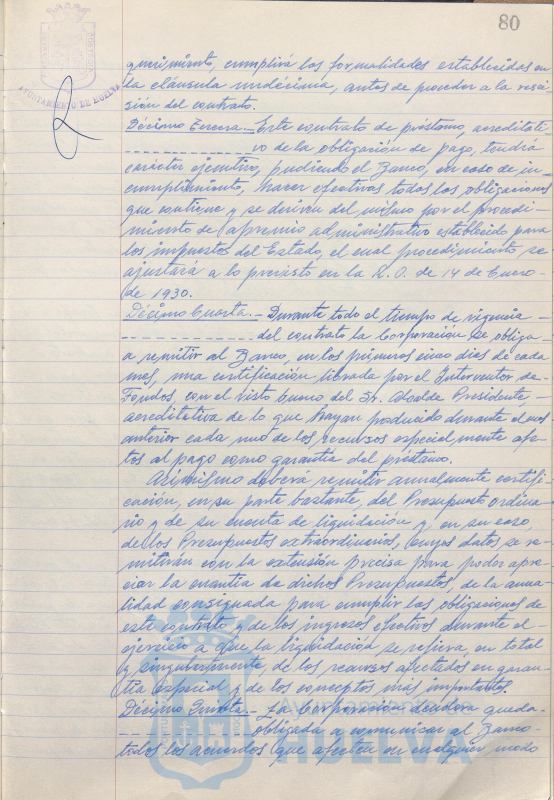 80
AYUNTAMIENTO DE HUELVA
querimiento, cumplirá las formalidades establecidas en
la cláusula undécima, antes de proceder a la resci-
sión del contrato.
Décimo Tercera.- Este contrato de préstamo, acreditati-
vo de la obligación de pago, tendrá
carácter ejecutivo, pudiendo el Banco, en caso de in-
cumplimiento, hacer efectivas todas las obligaciones
que contiene y se derivan del mismo por el procedi-
miento de apremio administrativo establecido para
los impuestos del Estado, el cual procedimiento se
ajustará a lo previsto en la R.O. de 14 de Enero-
de 1930.
Décimo Cuarta.- Durante todo el tiempo de vigencia
del contrato la Corporación se obliga
a remitir al Banco, en los primeros cinco dias de cada
mes, una certificación librada por el Interventor de-
Fondos, con el visto bueno del Sr. Alcalde Presidente-
acreditativa de lo que hayan producido durante el mes
anterior cada uno de los recursos especialmente afec-
tos al pago como garantía del préstamo.
Asimismo deberá remitir anualmente certifi-
cación, en su parte bastante, del Presupuesto ordina-
rio y de su cuenta de liquidación y, en su caso,
de los Presupuestos extraordinarios, cuyos datos se re-
mitirán con la extensión precisa para poder apre-
ciar la cuantía de dichos Presupuestos, de la anua-
lidad consignada para cumplir las obligaciones de
este contrato y de los ingresos efectivos durante el-
ejercicio a que la liquidación se refiera, en total
y singularmente, de los recursos afectados en garan-
tía especial y de los conceptos más importantes.
Décimo Quinta.- La Corporación deudora queda-
obligada a comunicar al Banco-
todos los acuerdos que afecten en cualquier modo
HUELVA